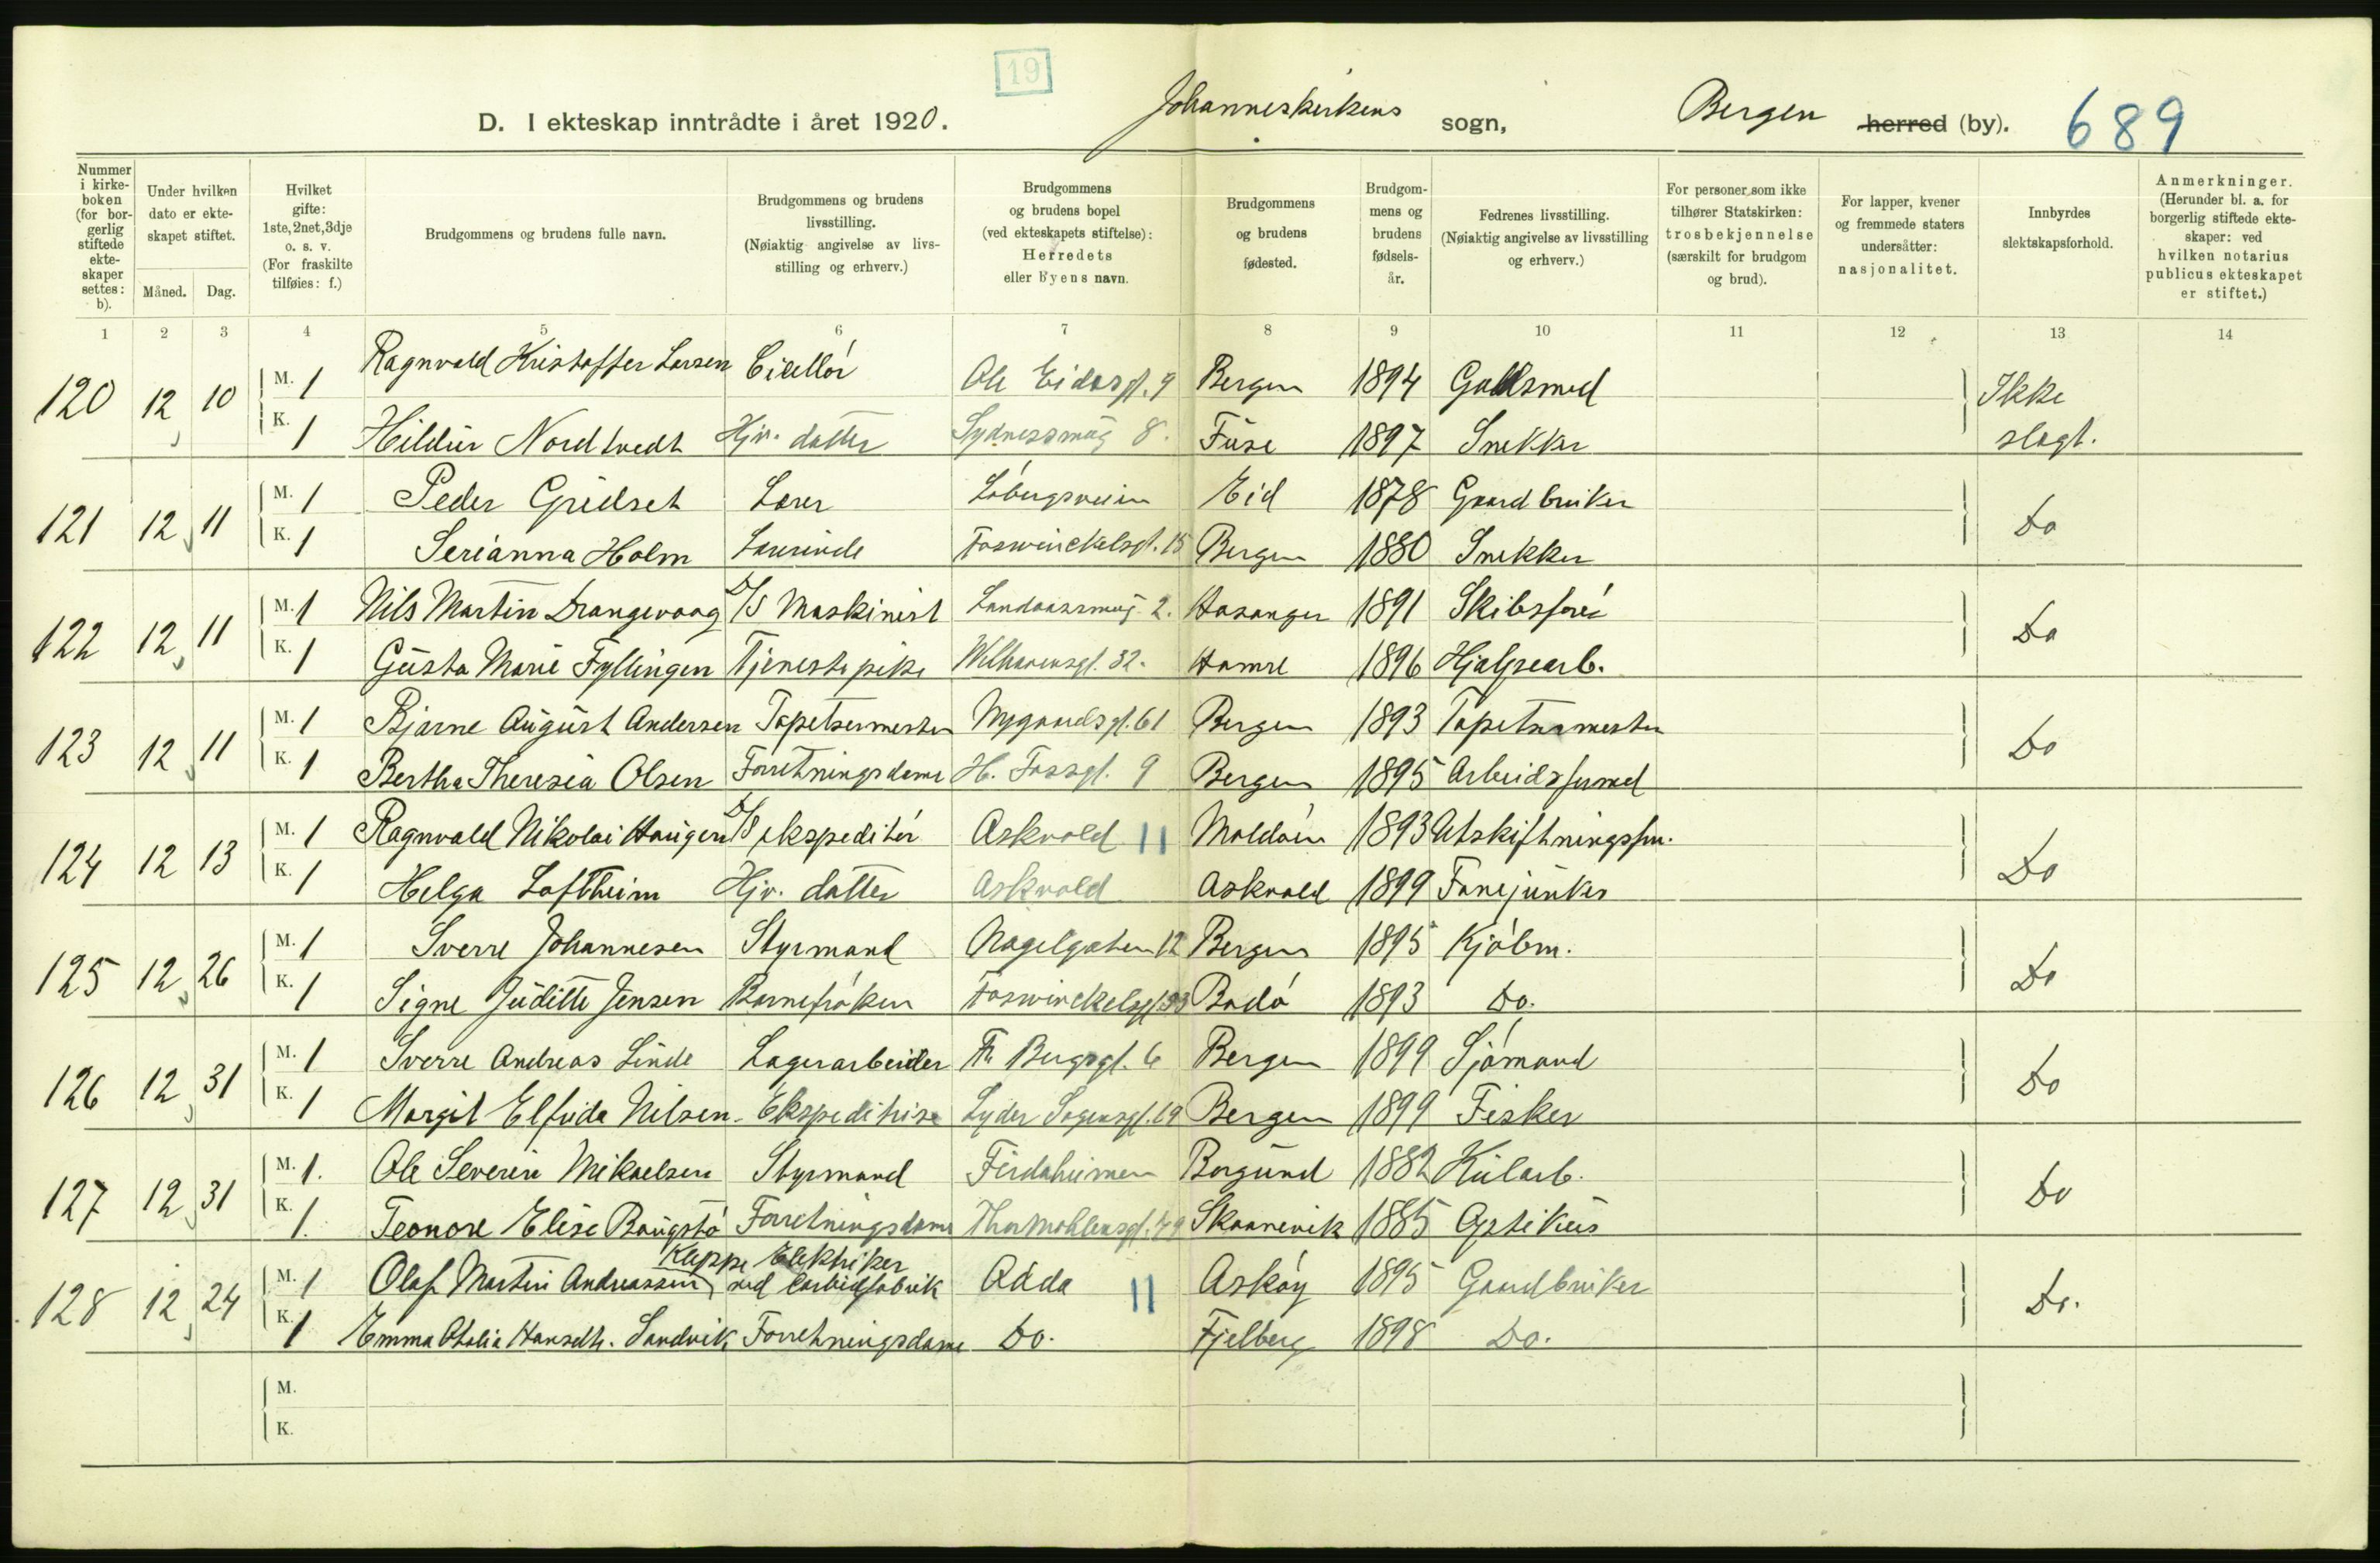 19
D. I ekteskap inntrådte i året 1920. Johanneskirkens sogn, Bergen herred (by). 689
Nummer i kirke- boken (for bor- gerlig stiftede ekte- skaper settes: b).
Under hvilken dato er ekte- skapet stiftet.
Måned. Dag.
Hvilket gifte: 1ste, 2net, 3dje o. s. v. (For fraskilte tilføies: f.)
Brudgommens og brudens fulle navn.
Brudgommens og brudens livsstilling. (Nøiaktig angivelse av livs- stilling og erhverv.)
Brudgommens og brudens bopel (ved ekteskapets stiftelse): Herredets eller byens navn.
Brudgommens og brudens fødested.
Brudgom- mens og brudens fødsels- år.
Fedrenes livsstilling. (Nøiaktig angivelse av livsstilling og erhverv.)
For personer som ikke tilhører Statskirken: trosbekjennelse (særskilt for brudgom og brud).
For lapper, kvener og fremmede staters undersåtter: nasjonalitet.
Innbyrdes slektskapsforhold.
Anmerkninger. (Herunder bl. a. for borgerlig stiftede ekte- skaper: ved hvilken notarius publicus ekteskapet er stiftet.)
1 2 3 4 5 6 7 8 9 10 11 12 13 14
120 12 10 M. 1 Ragnvald Kristoffer Larsen Cicellör Ole Eidesgt. 9 Bergen 1894 Gullsmed Ikke
K. 1 Hildur Nordtvedt Hjv. datter Sydnessmug 8. Fuse 1897 Snekker slegt.
121 12 11 M. 1 Peder Gridset Lærer Löbergsveien Eid 1878 Gaardbruker Do
K. 1 Serianna Holm Lærerinde Foswinckelsgt. 15 Bergen 1880 Snekker
122 12 11 M. 1 Nils Martin Drangevaag D/S Maskinist Landaassmug 2. Hosanger 1891 Skibsförer Do
K. 1 Gusta Marie Fyllingen Tjenestepike Welhavensgt. 32. Hamre 1896 Hjælpearb.
123 12 11 M. 1 Bjarne August Andersen Tapetsermester Nygaardsgt. 61 Bergen 1893 Tapetsermester Do
K. 1 Bertha Theresia Olsen Forretningsdame H. Fossgt. 9 Bergen 1895 Arbeidsformd
124 12 13 M. 1 Ragnvald Nikolai Haugen D/S ekspeditör Askvold 11 Maldöen 1893 Utskiftningsfm. Do
K. 1 Helga Loftheim Hjv. datter Askvold Askvold 1899 Fanejunker
125 12 26 M. 1 Sverre Johannesen Styrmand Nagelgaten 12 Bergen 1895 Kjöbm. Do
K. 1 Signe Juditte Jensen Barnefröken Foswinckelsgt. 33 Bodö 1893 Do.
126 12 31 M. 1 Sverre Andreas Linde Lagerarbeider Fr. Bugsgt. 6 Bergen 1899 Sjömand Do
K. 1 Margit Elfrida Nilsen Ekspeditrise Lyder Sagensgt. 19 Bergen 1899 Fisker
127 12 31 M. 1. Ole Severin Mikaelsen Styrmand Firdaheimen Borgund 1882 Kularb. Do
K. 1. Teonore Elise Baugstö Forretningsdame Thormöhlensgt. 49 Skaanevik 1885 Optikus
128 12 24 M. 1 Olaf Martin Andreassen Kleppe Elektriker ved Carbidfabrik Odda 11 Asköy 1895 Gaardbruker Do.
K. 1 Emma Othalia Hansdtr. Sandvik Forretningsdame Do. Fjelberg 1898 Do.
M.
K.